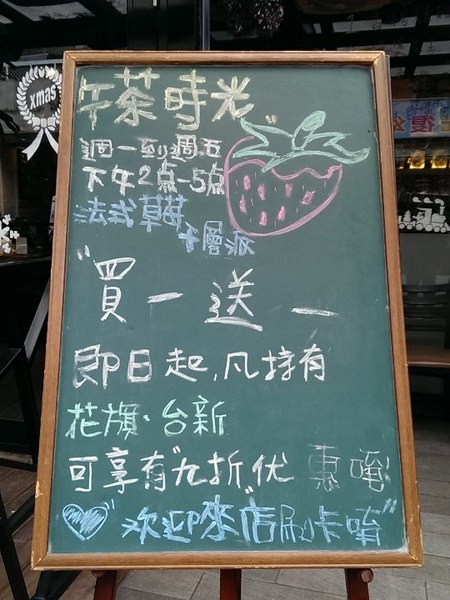 xmas
午茶時光
週一到週五
下午2点-5点
法式草莓
千層派
"買一送一
即日起,凡持有
花旗·台新
可享有"九折"优惠唷
欢迎來店刷卡唷"